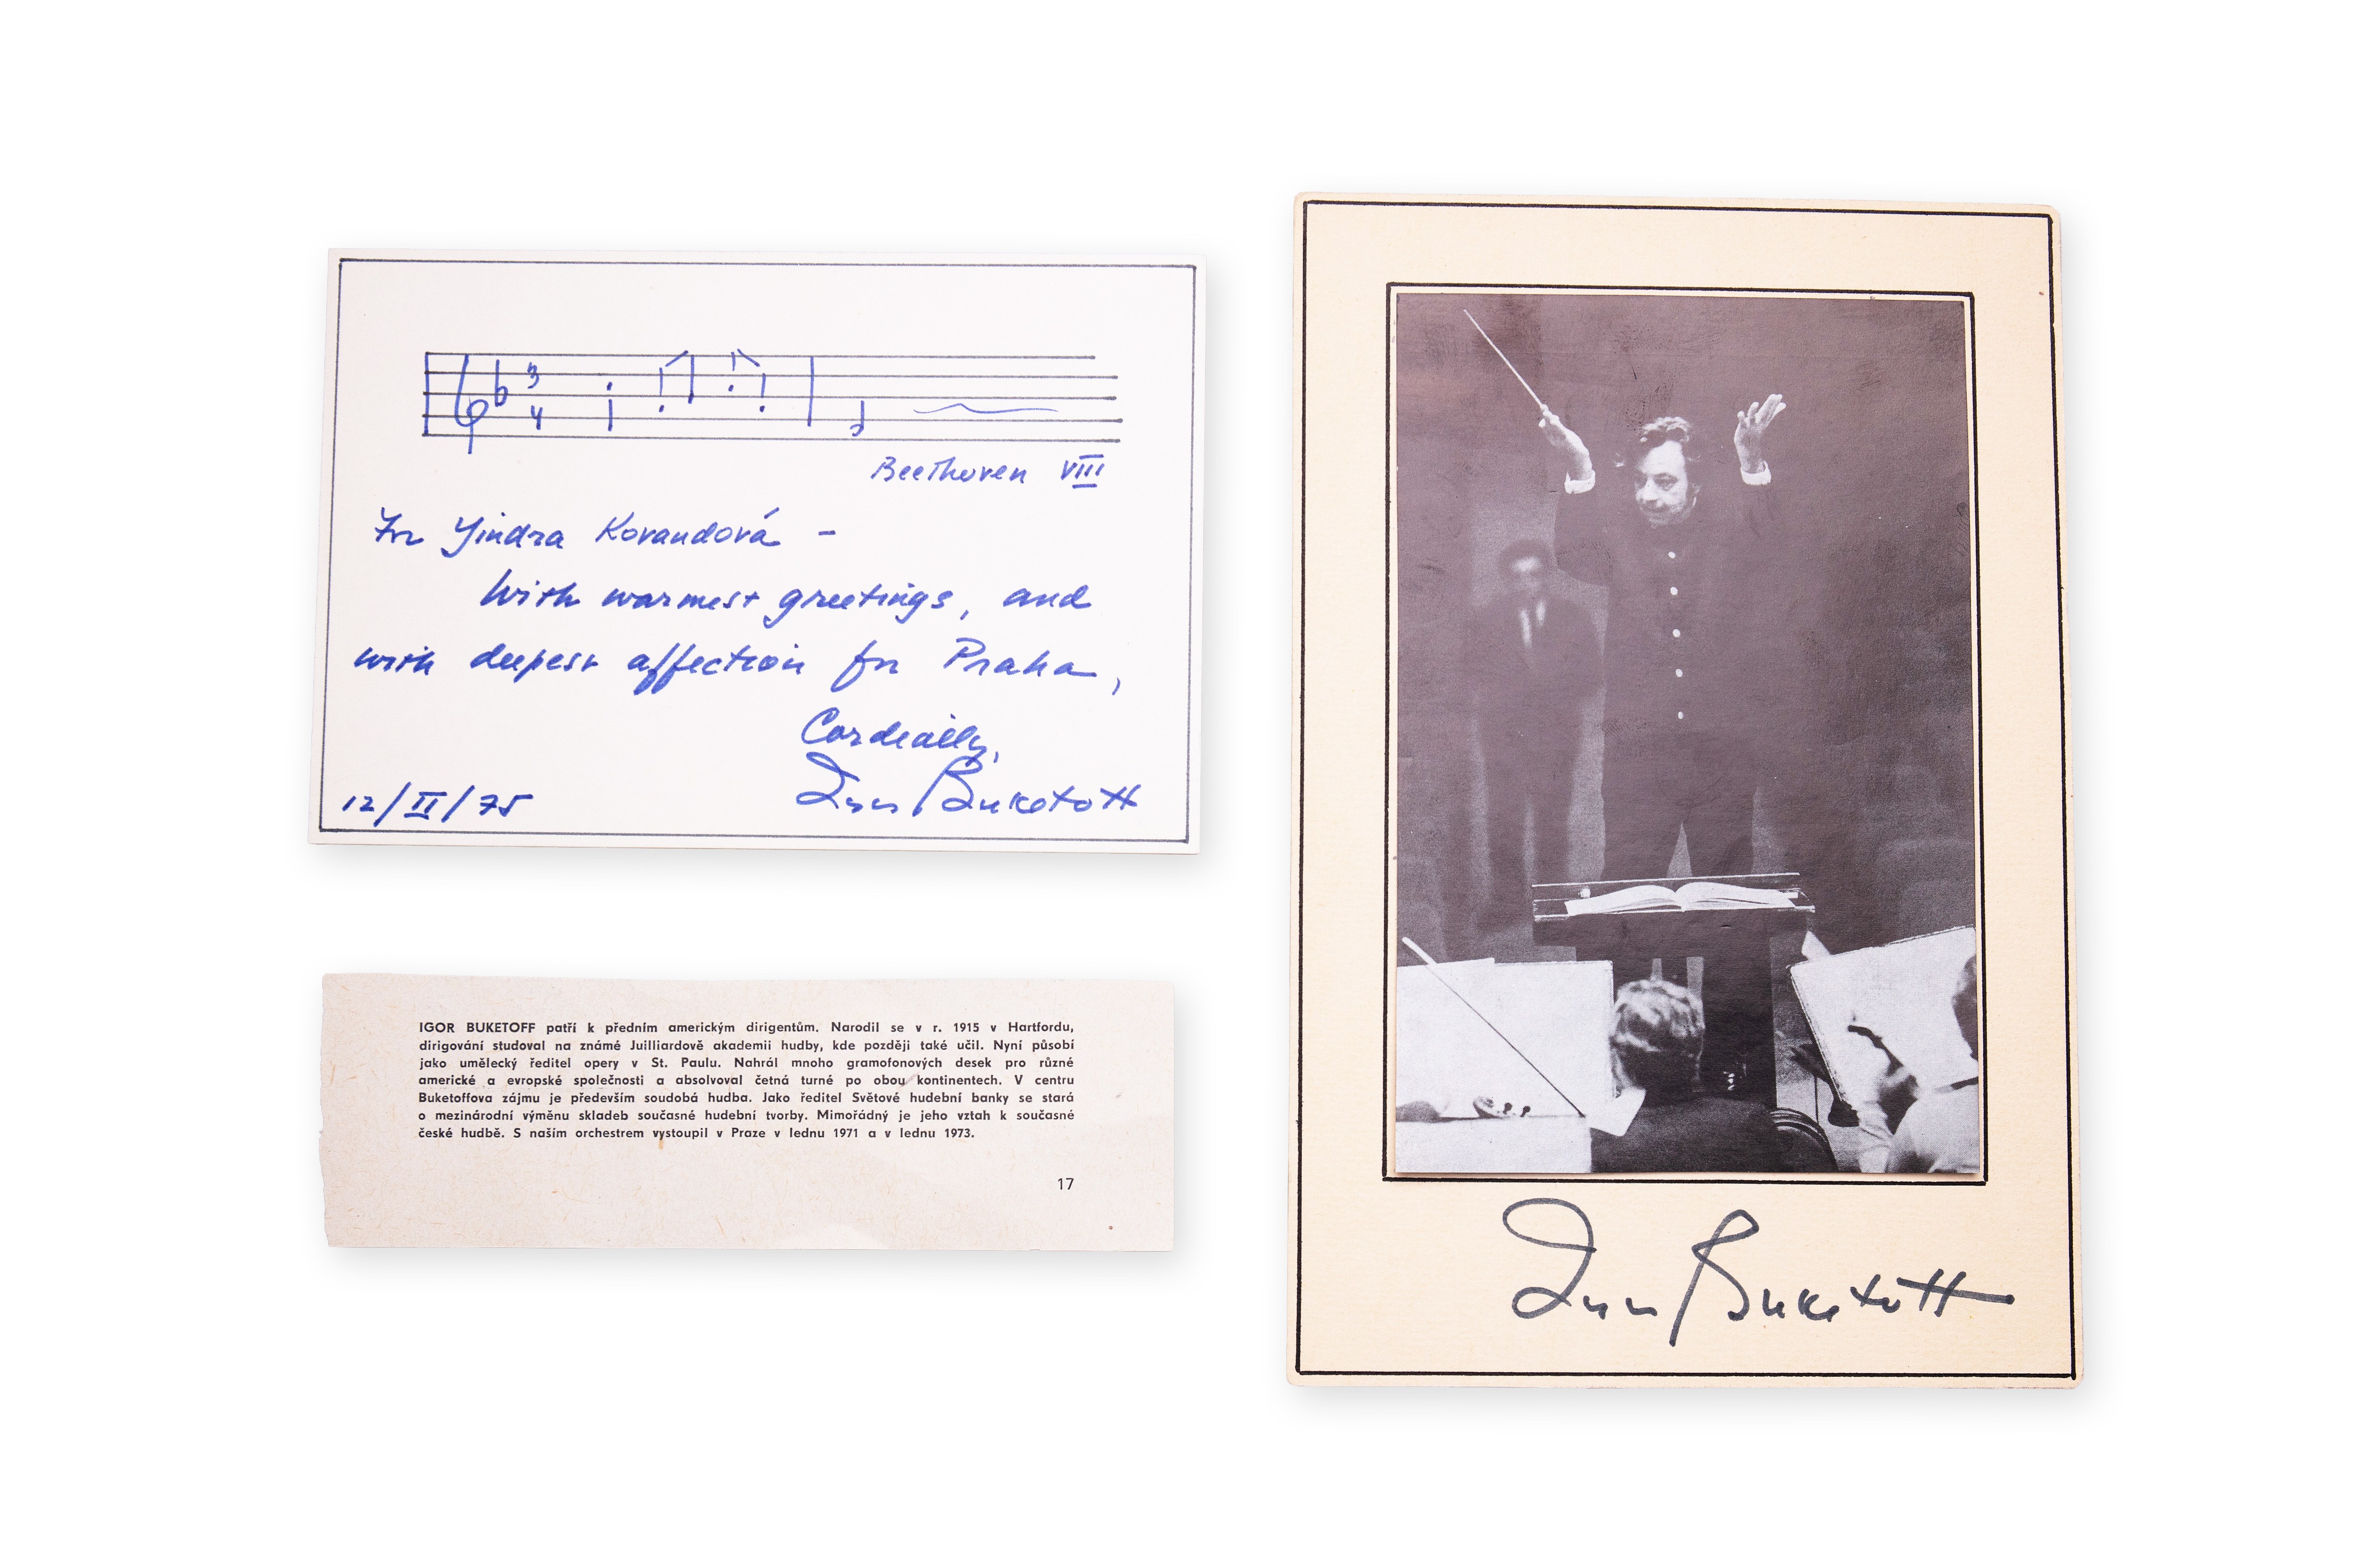 3
4
Beethoven VIII
For Yindra Kovandová –
With warmest greetings, and
with deepest affection for Praha,
Cordially,
Igor Buketoff
12/II/75
IGOR BUKETOFF patří k předním americkým dirigentům. Narodil se v r. 1915 v Hartfordu,
dirigování studoval na známé Juilliardově akademii hudby, kde později také učil. Nyní působí
jako umělecký ředitel opery v St. Paulu. Nahrál mnoho gramofonových desek pro různé
americké a evropské společnosti a absolvoval četná turné po obou kontinentech. V centru
Buketoffova zájmu je především soudobá hudba. Jako ředitel Světové hudební banky se stará
o mezinárodní výměnu skladeb současné hudební tvorby. Mimořádný je jeho vztah k současné
české hudbě. S naším orchestrem vystoupil v Praze v lednu 1971 a v lednu 1973.
17
Igor Buketoff